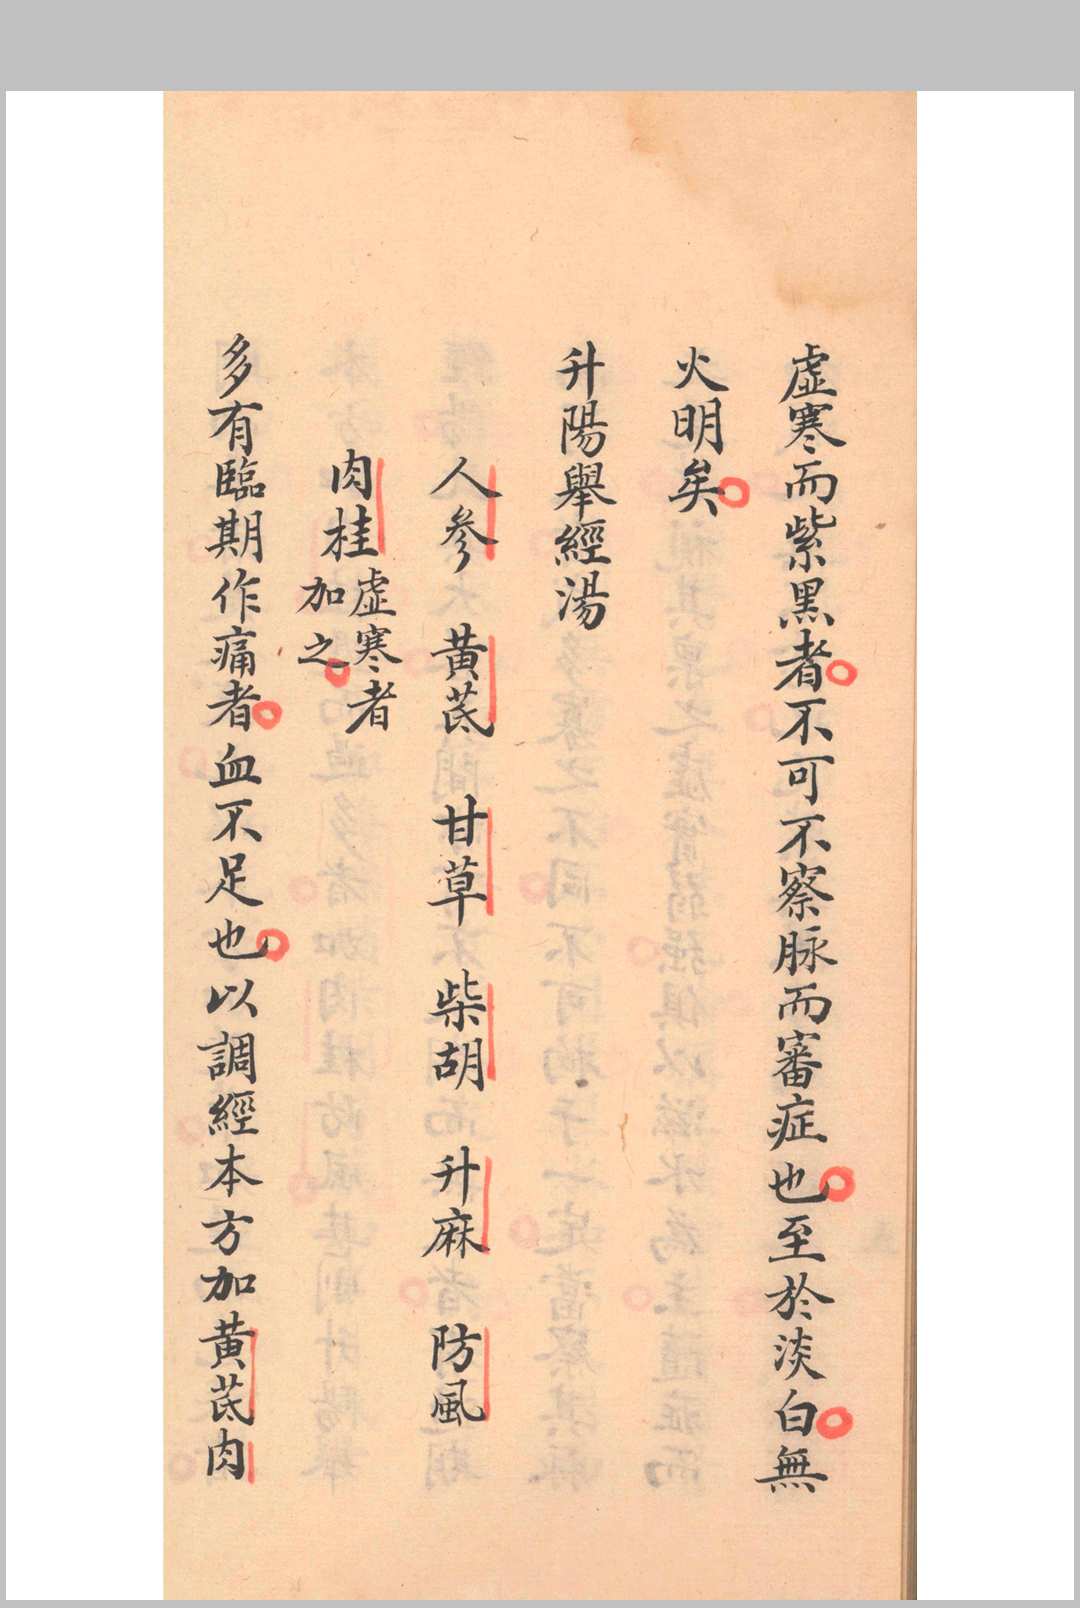 虛寒而紫黑者不可不察脉而審症也至於淡白無
火明矣
升陽舉經湯
人參　黃芪　甘草　柴胡　升麻　防風
肉桂虛寒者加之
多有臨期作痛者血不足也以調經本方加黃芪肉